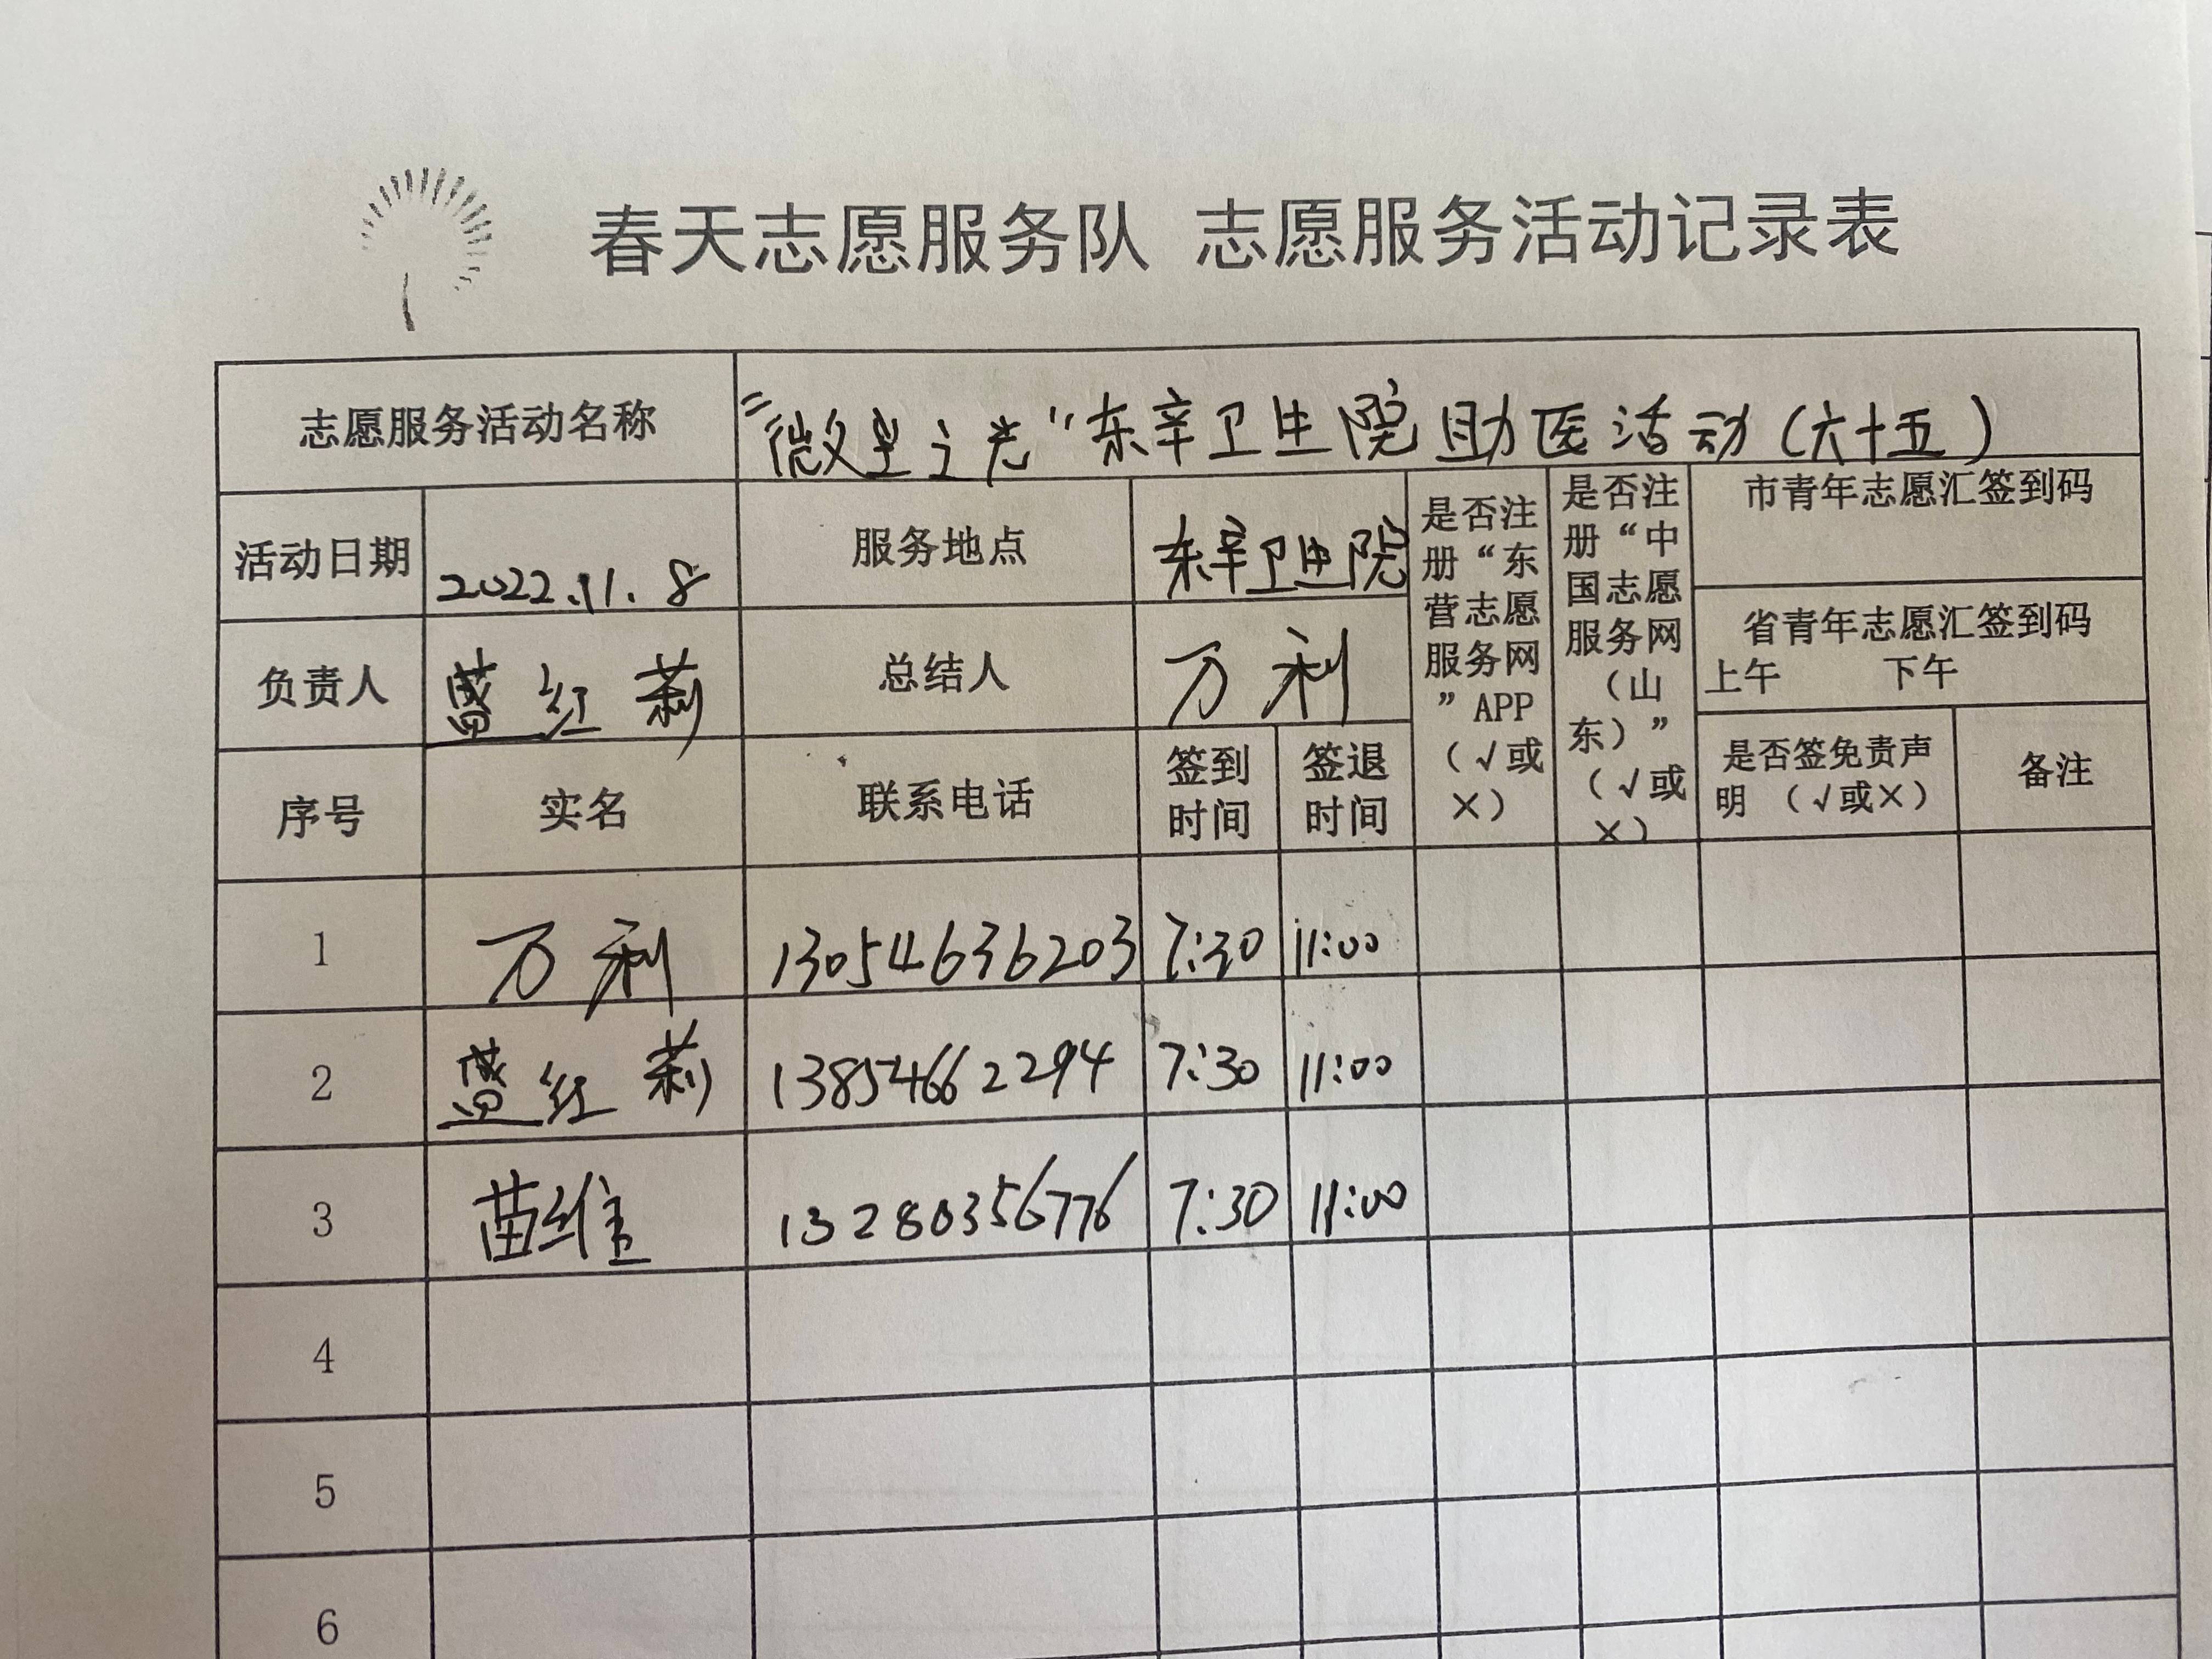 春天志愿服务队 志愿服务活动记录表
志愿服务活动名称 “微尘之光”东辛卫生院助医活动(六十五)
活动日期 2022.11.8 服务地点 东辛卫生院
是否注册“东营志愿服务网”APP（√或×）
是否注册“中国志愿服务网（山东）”（√或×）
市青年志愿汇签到码
省青年志愿汇签到码
上午 下午
负责人 盛红莉 总结人 万利
序号 实名 联系电话 签到时间 签退时间 是否签免责声明 （√或×） 备注
1 万利 13054636203 7:30 11:00
2 盛红莉 13854662294 7:30 11:00
3 苗维 13280356776 7:30 11:00
4
5
6